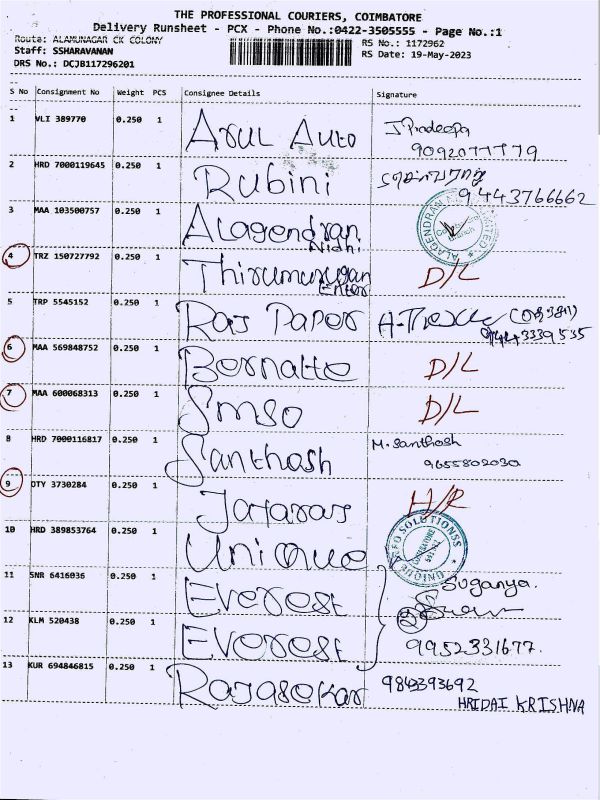 THE PROFESSIONAL COURIERS, COIMBATORE
Delivery Runsheet - PCX - Phone No.:0422-3505555 - Page No.:1
Route: ALAMUNAGAR CK COLONY
Staff: SSHARAVANAN
DRS No.: DCJB117296201
RS No.: 1172962
RS Date: 19-May-2023
S No Consignment No Weight PCS Consignee Details Signature
1 VLI 389770 0.250 1 Arul Auto J Pradeepa
9092077779
2 HRD 7000119645 0.250 1 Rubini
9443766662
3 MAA 103500757 0.250 1 Alagendran
Nidhi
4 TRZ 150727792 0.250 1 Thirumurugan D/L
Enter
5 TRP 5545152 0.250 1 Raj Paper
6 MAA 569848752 0.250 1 Bernatte D/L
7 MAA 600068313 0.250 1 Smso D/L
8 HRD 7000116817 0.250 1 Santhosh M. Santhosh
9655802030
9 OTY 3730284 0.250 1 Jayaraj H/R
10 HRD 389853764 0.250 1 Unique
11 SNR 6416036 0.250 1 Everest Suganya.
12 KLM 520438 0.250 1 Everest 2
9952331677.
13 KUR 694846815 0.250 1 Rajasekar 9843393692
HRIDAI KRISHNA